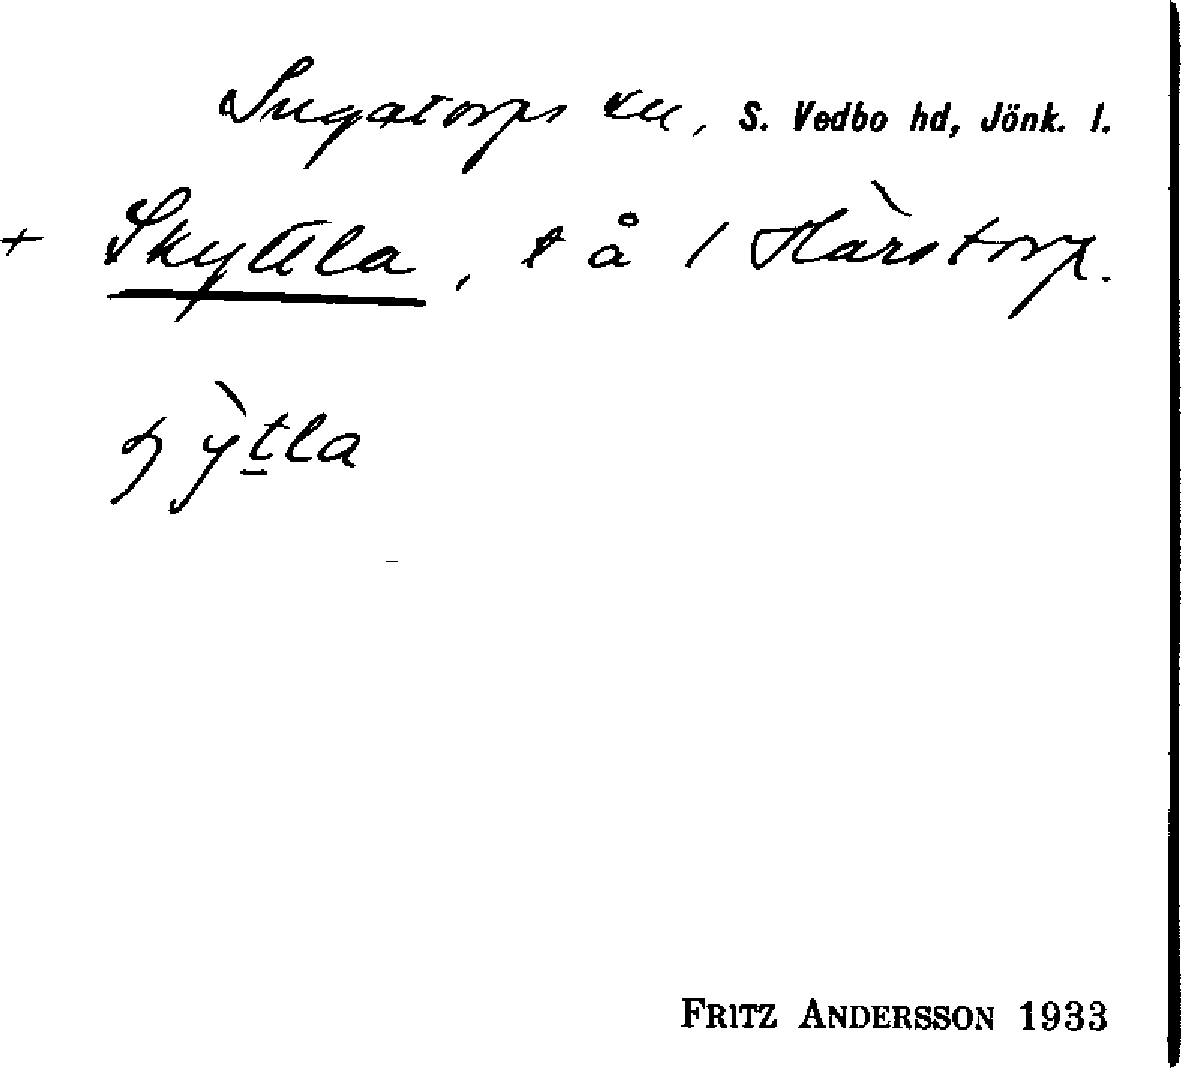 Ingatorps sn, S. Vedbo hd, Jönk. l.
+ Skyttla, t å 1 Hàrstorp.
ỳtla
FRITZ ANDERSSON 1933